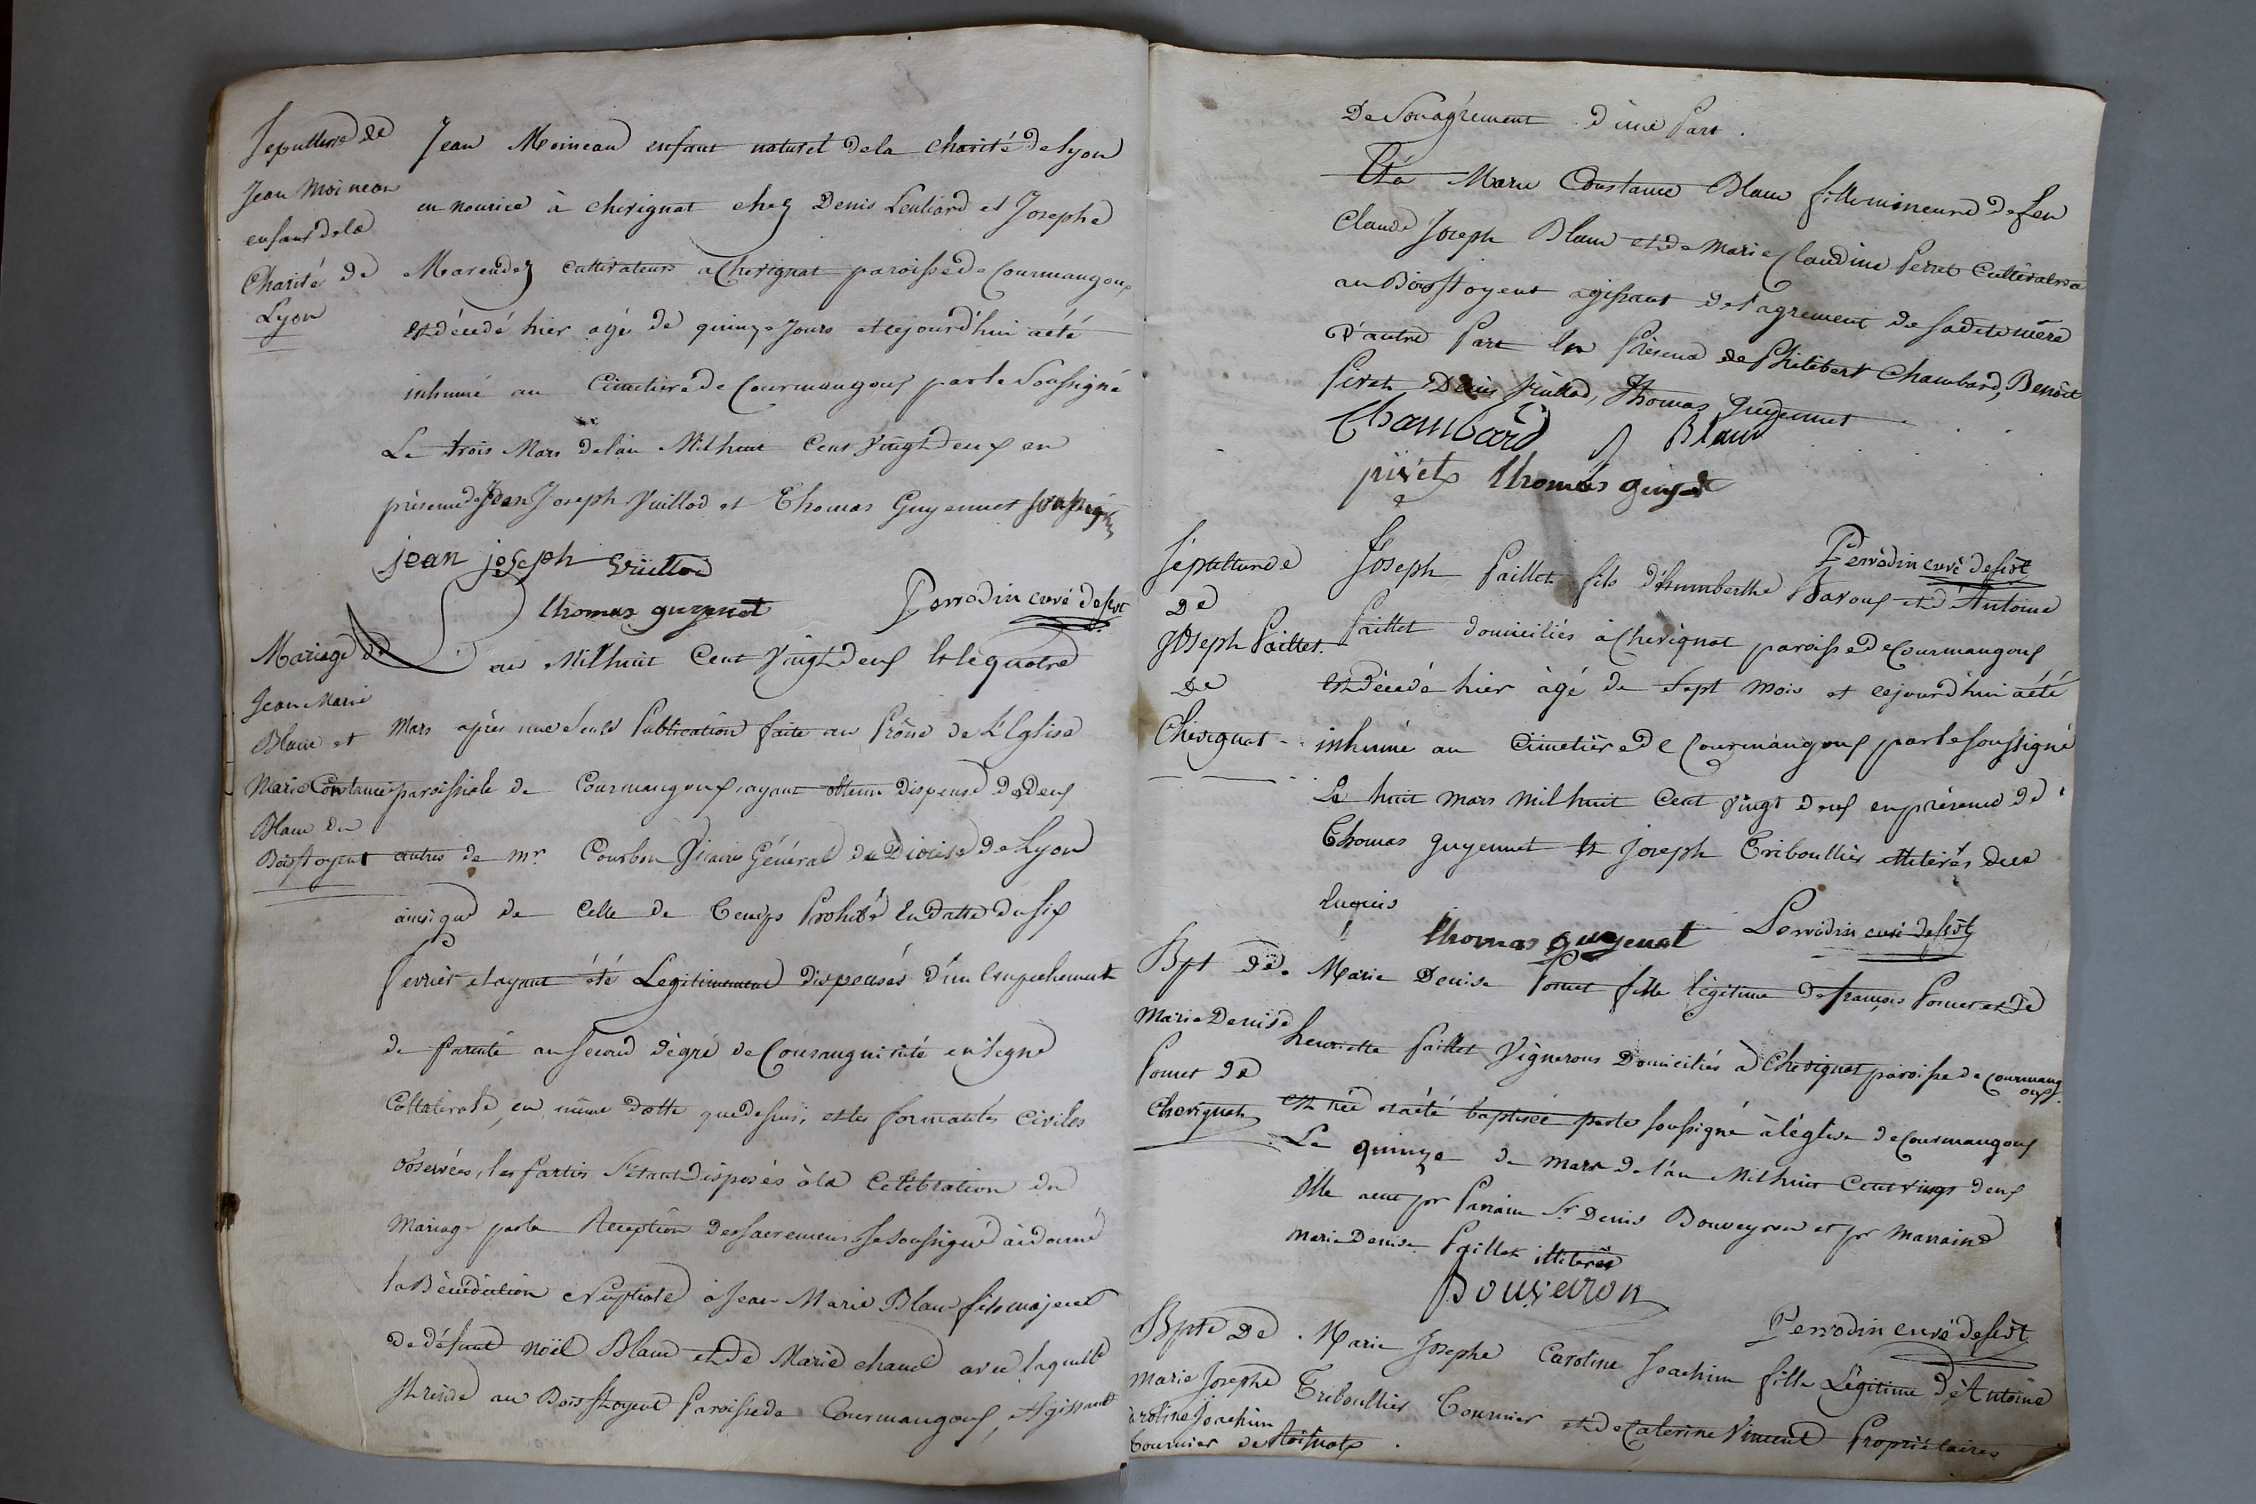 Sepulture de
Jean Moineau
enfant de la
Charité de
Lyon
Jean Moineau enfant naturel de la charité de Lyon
en nourice à chevignat chez Denis Leutiard et Josephe
Marendez cultivateurs a Chevignat paroisse de Courmangoux
est décédé hier agé de quinze Jours et cejourd'hui aété
inhumé au Cimetière de Courmangoux par le Soussigné
Le trois Mars de l'an Mil huit Cent Vingt deux en
présence de Jean Joseph Vuillod et Thomas Guyennet soussignés
jean joseph Vuillod
thomas guyenet Perrodin curé desst
Mariage de
Jean Marie
Blanc et
Marie Constance
Blanc du
Bois stoyent
L'an Mil huit Cent Vingt deux et le quatre
Mars après une seule Publication faite au Prône de L'Eglise
paroissiale de Courmangoux, ayant obtenu dispense de deux
autres de mr. Courbon Vicaire Général du Diocèse de Lyon
ainsi que de Celle de Temps Prohibé En datte du six
fevrier et ayant été Legitimement dispensés d'un Empechement
de Parenté au second dégré de Consanguinité en Ligne
Collaterale, en même datte que dessus, et les formalités Civiles
observées, les Parties s'étant disposés à la Celebration du
Mariage par la Reception des sacremens Le soussigné ai donné
la Bénédiction Nuptiale à Jean Marie Blanc fils majeur
de défunt Noël Blanc et de Marie chanel avec laquelle
Il reside au Bois stoyent Paroisse de Courmangoux, Agissant
De Son agrément d'une Part.
Et à Marie Constance Blanc fille mineure de feu
Claude Joseph Blanc et de Marie Claudine Perret Cultivatrice
au Bois stoyent agissant de l'agrement de sadite mère
D'autre Part En Présence de Philibert Chambard, Benoît
Pivet, Denis Vuillod, Thomas guyennet
Chambard J Blanc
pivet thomas guyenet
Perrodin curé desst
Sépulture
De
Joseph Paillet
De
Chevignat
Joseph Paillet fils d'humberthe Baroux et d'Antoine
Paillet domiciliés à Chevignat paroisse de Courmangoux
est décédé hier àgé de Sept mois et cejourd'hui aété
inhumé au Cimetière de Courmangoux par le soussigné
Le huit mars mil huit Cent Vingt deux en présence de
Thomas guyennet et Joseph Triboullier illitérés de ce
Enquis
thomas guyenat Perrodin curé desst
Bpt de
Marie Denise
Pomet de
Chevignat
Marie Denise Pomet fille légitime de françois Pomet et de
henriette Paillet Vignerons Domiciliés à Chevignat paroisse de Courmang
oux.
est née et aété baptisée par le soussigné à l'église de Courmangoux
Le quinze de mars de l'an Mil huit Cent vingt deux
Elle a eut pr Parrain Sr. Denis Bouveyron et pr marraine
Marie Denise Paillet illitérés
Bouveiron
Perrodin curé desst
Bpte De
Marie Josephe
Caroline Joachim
Tournier de Roissiat
Marie Josephe Caroline Joachim fille Légitime d'Antoine
Triboullier Tournier et de Caterine Vincent Propriétaires